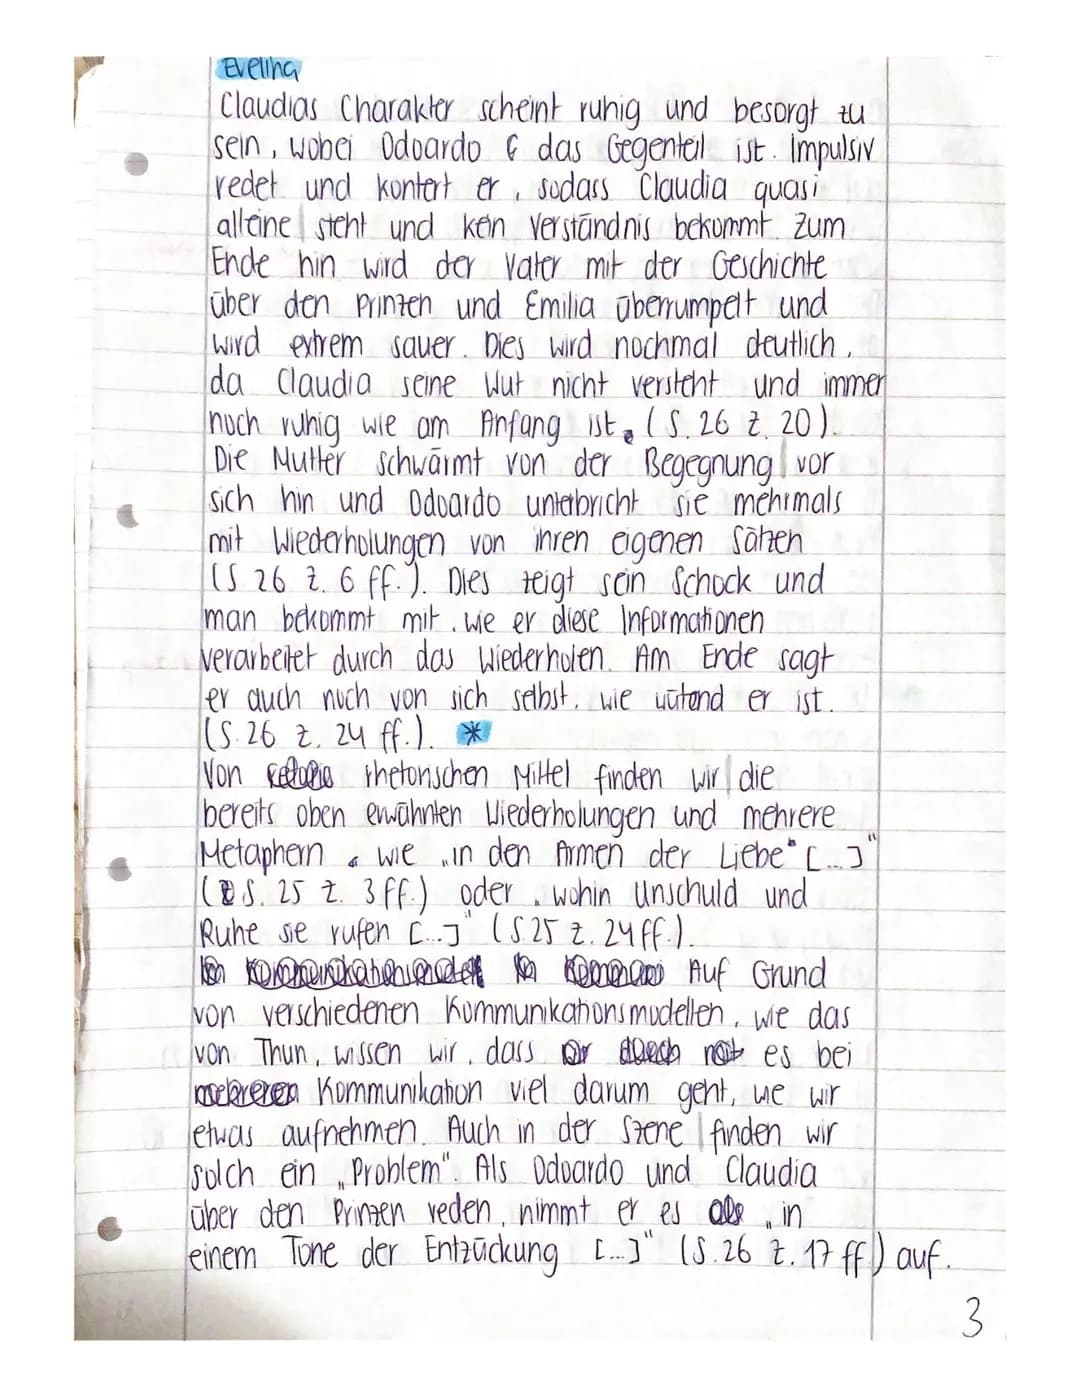 Evelina
Claudias Charakter scheint ruhig und besorgt zu
sein, wobei Odoardo das Gegenteil ist. Impulsiv
redet und kontert er, sodass Claudia quasi
alleine steht und kein Verständnis bekommt. Zum
Ende hin wird der Vater mit der Geschichte
über den Prinzen und Emilia überrumpelt und
wird extrem sauer. Dies wird nochmal deutlich,
da Claudia seine Wut nicht versteht und immer
noch ruhig wie am Anfang ist. (S. 26 Z. 20).
Die Mutter schwärmt von der Begegnung vor
sich hin und Odoardo unterbricht sie mehrmals
mit Wiederholungen von ihren eigenen Sätzen
(S. 26 Z. 6 ff.). Dies zeigt sein Schock und
man bekommt mit, wie er diese Informationen
verarbeitet durch das Wiederholen. Am Ende sagt
er auch noch von sich selbst, wie wütend er ist.
(S. 26 Z. 24 ff.). *
Von rhetorischen Mittel finden wir die
bereits oben erwähnten Wiederholungen und mehrere
Metaphern, wie „in den Armen der Liebe [...]"
(S. 25 Z. 3 ff.) oder „wohin Unschuld und
Ruhe sie rufen [...]" (S. 25 Z. 24 ff.).
Auf Grund
von verschiedenen Kommunikationsmodellen, wie das
von Thun, wissen wir, dass es bei
Kommunikation viel darum geht, wie wir
etwas aufnehmen. Auch in der Szene finden wir
solch ein „Problem". Als Odoardo und Claudia
über den Prinzen reden, nimmt er es „in
einem Tone der Entzückung [...]" (S. 26 Z. 17 ff.) auf.
3